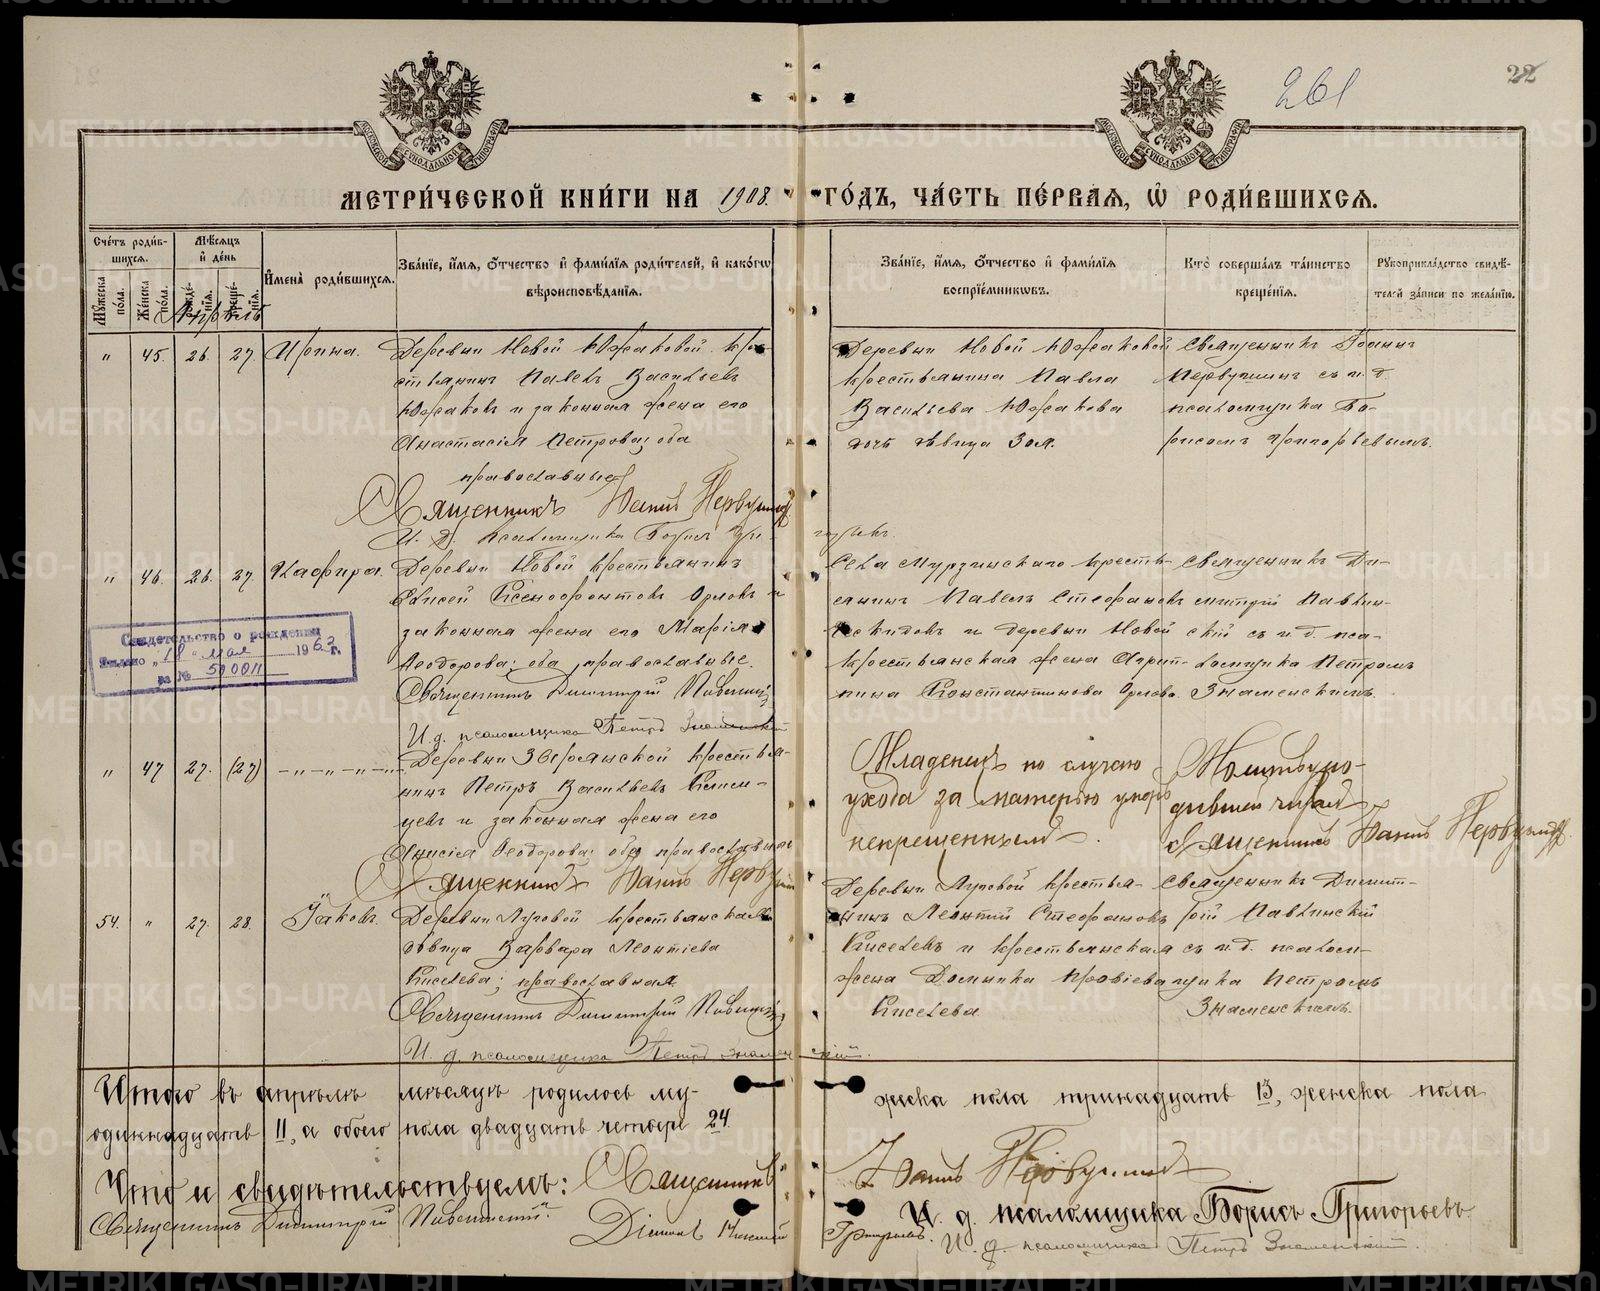 261
22
МОСКОВСКОЙ СѴНОДАЛЬНОЙ ТИПОГРАФІИ
МОСКОВСКОЙ СѴНОДАЛЬНОЙ ТИПОГРАФІИ
МЕТРИ́ЧЕСКОЙ КНИ́ГИ НА 1908. ГО́ДЪ, ЧА́СТЬ ПЕ́РВАЯ, Ѡ҆ РОДИ́ВШИХСЯ.
Сче́тъ роди́вшихся.
Мꙋ́жеска по́ла.
Же́нска по́ла.
Мѣ́сяцъ и҆ де́нь
рожде́нїя.
креще́нїя.
И҆мена̀ роди́вшихся.
Зва́нїе, и҆́мя, ѻ҆́тчество и҆ фами́лїя роди́телей, и҆ како́гѡ
вѣроисповѣ́данїя.
Зва́нїе, и҆́мя, ѻ҆́тчество и҆ фами́лїя
воспрїе́мникѡвъ.
Кто̀ соверша́лъ та́инство
креще́нїя.
Рꙋкоприкла́дство свидѣ́-
телей за́писи по жела́нїю.
Апрѣль
" 45. 26. 27. Ирина.
Деревни Новой Южаковой кре-
стьянинъ Павелъ Васильевъ
Южаковъ и законная жена его
Анастасія Петрова; оба
православные
Священникъ Іоаннъ Первушинъ
И. д. псаломщика Борисъ Гри-
горьевъ.
Деревни Новой Южаковой
крестьянина Павла
Васильева Южакова
дочь дѣвица Зоя.
Священникъ Іоаннъ
Первушинъ съ и. д.
псаломщика Бо-
рисомъ Григорьевымъ.
" 46. 26. 27. Глафира.
Деревни Новой крестьянинъ
Евсей Ксенофонтовъ Орловъ и
законная жена его Марія
Ѳеодорова; оба православные.
Священникъ Димитрій Павинскій
И. д. псаломщика Петръ Знаменскій
Села Мурзинскаго кресть-
янинъ Павелъ Стефановъ
и деревни Новой
крестьянская жена Агрип-
пина Константинова Орлова.
Священникъ Ди-
митрій Павин-
скій съ и. д. пса-
ломщика Петромъ
Знаменскимъ.
Свидетельство о рождении
Выдано " 18 " мая 1962 г.
за № 500011
" 47 27. (27) -"-"-"-"-
Деревни Зырянской крестья-
нинъ Петръ Васильевъ Клим-
цевъ и законная жена его
Анисія Ѳеодорова; оба православные
Священникъ Іоаннъ Первушинъ
Младенецъ по случаю
ухода за матерью умеръ
некрещеннымъ.
Молитву ро-
дившей читалъ
Священникъ Іоаннъ Первушинъ.
54. " 27. 28. Іаковъ.
Деревни Луговой крестьянская
дѣвица Варвара Леонтіева
Киселева; православная.
Священникъ Димитрій Павинскій
И. д. псаломщика Петръ Знаменскій.
Деревни Луговой крестья-
нинъ Леонтій Стефановъ
Киселевъ и крестьянская
жена Домника Провіева
Киселева
Священникъ Димит-
рій Павинскій
съ и. д. псалом-
щика Петромъ
Знаменскимъ.
Итого въ апрѣлѣ мѣсяцѣ родилось му-жеска пола тринадцать 13, женска пола
одиннадцать 11, а обоего пола двадцать четыре 24.
Что и свидѣтельствуемъ: Священникъ Іоаннъ Первушинъ
Священникъ Димитрій Павинскій.
И. д. псаломщика Борисъ Григорьевъ
И. д. псаломщика Петръ Знаменскій.